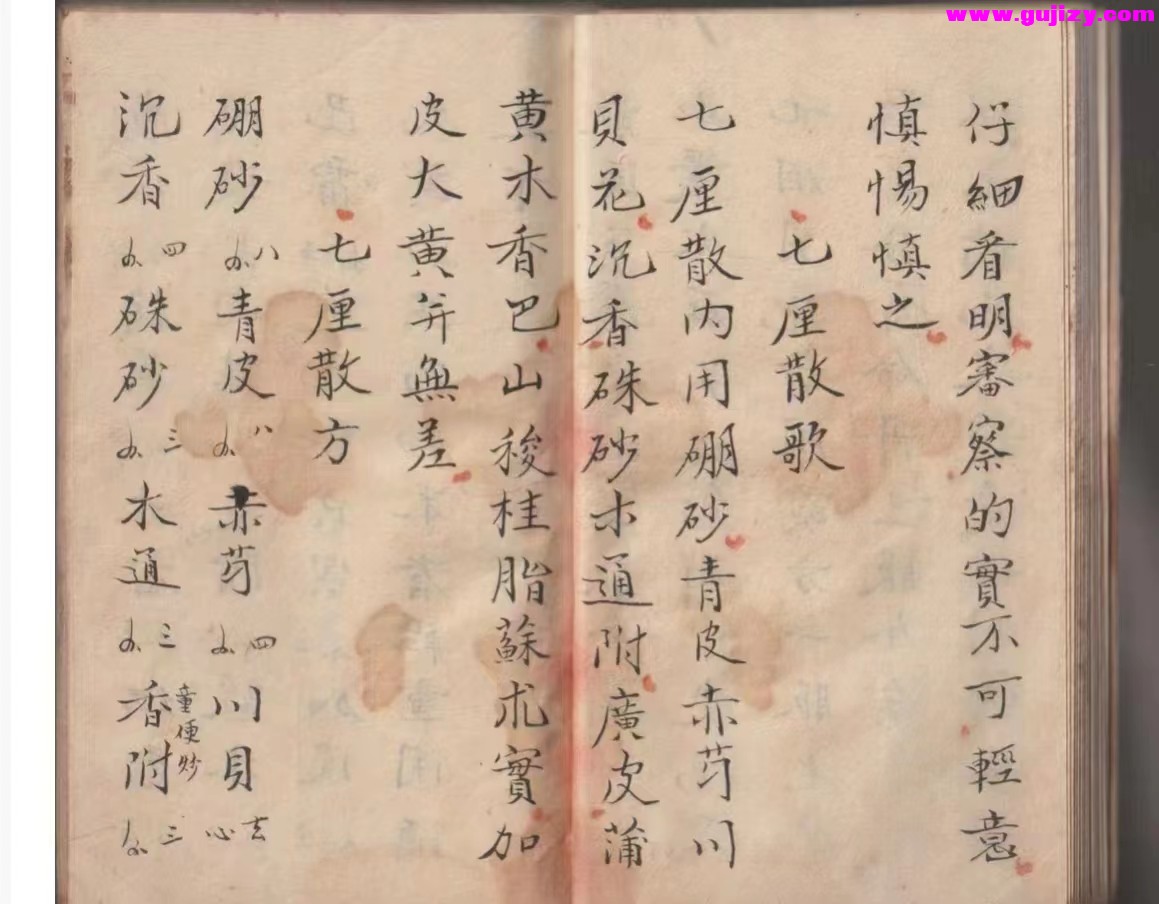 www.gujizy.com
仔細看明審察的實不可輕意
慎惕慎之
七厘散歌
七厘散内用硼砂青皮赤芍川
貝花沉香硃砂木通附廣皮蒲
黄木香巴山稜桂脂蘇朮實加
皮大黄并無差
七厘散方
硼砂 八 青皮 八 赤芍 四 川貝 去心
沉香 四 硃砂 三 木通 三 香附 童便炒 三